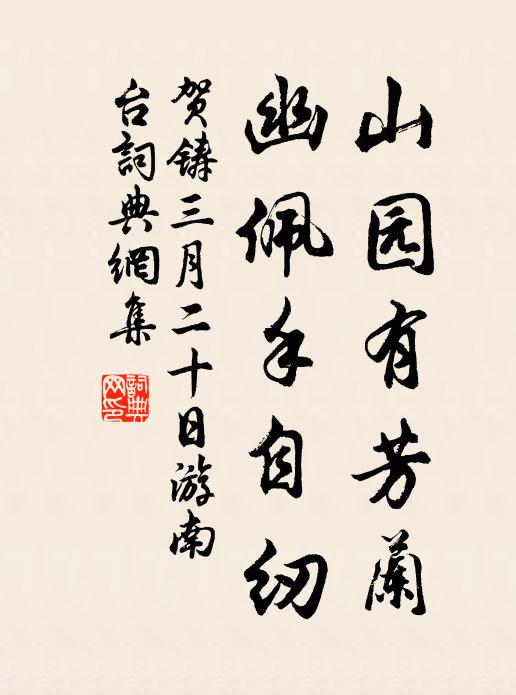 山园有芳兰
幽佩手自纫
贺铸三月二十日游南
台词典網集
詞典
网印